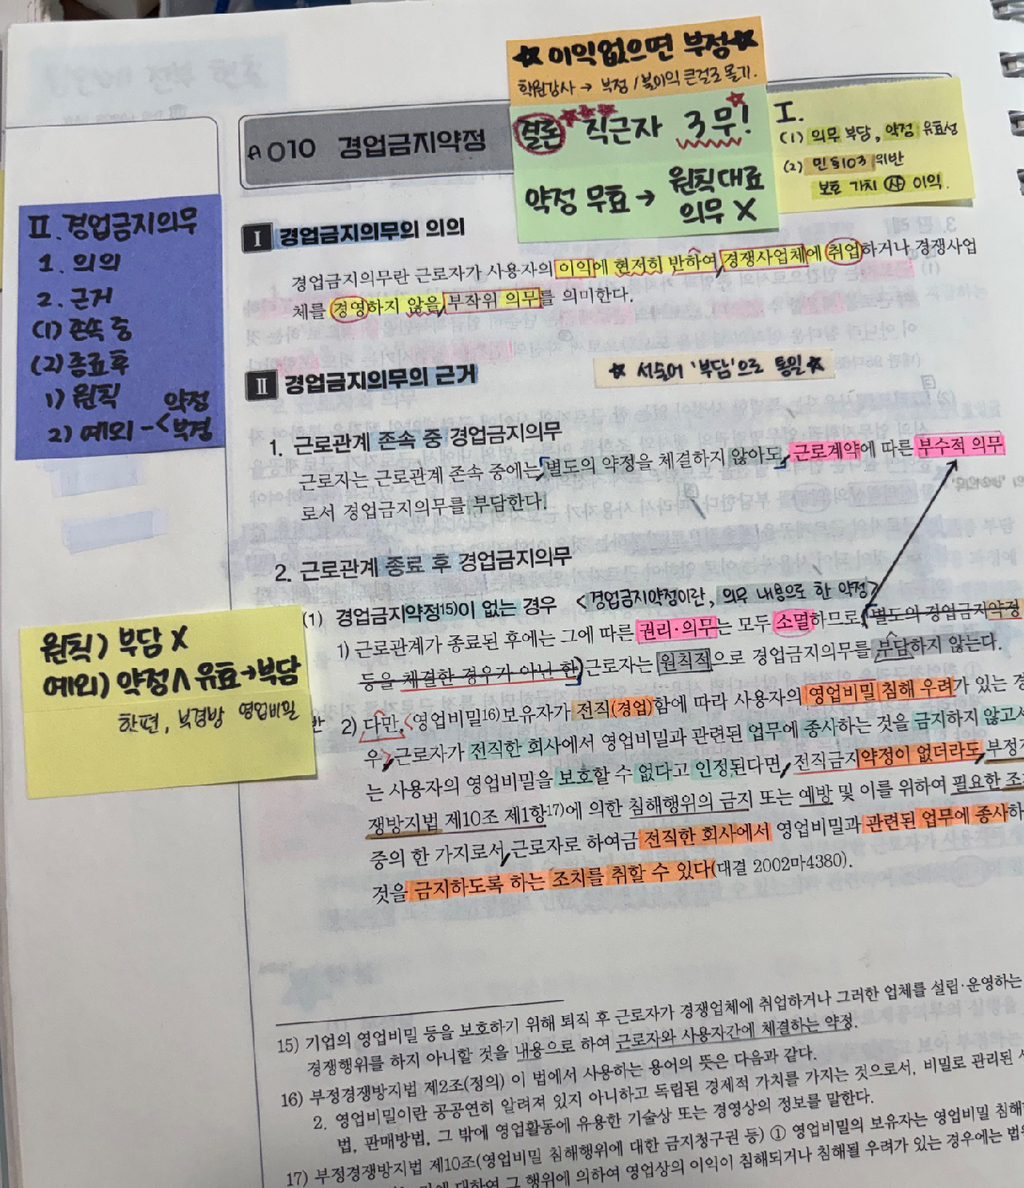 ☆ 이익없으면 부정 ☆
학원강사 → 부정 / 불이익 큰걸로 몰기.
결론 직근자 3무!
약정 무효 → 원칙대로
의무 X
I.
(1) 의무 부담, 약정 유효성
(2) 민§103 위반
보호 가치 사 이익.
A010 경업금지약정
II. 경업금지의무
1. 의의
2. 근거
(1) 존속 중
(2) 종료 후
1) 원칙
2) 예외 - < 약정
부경
I 경업금지의무의 의의
경업금지의무란 근로자가 사용자의 이익에 현저히 반하여, 경쟁사업체에 취업하거나 경쟁사업
체를 경영하지 않을 부작위 의무를 의미한다.
II 경업금지의무의 근거
☆ 서술어 '부담'으로 통일 ☆
1. 근로관계 존속 중 경업금지의무
근로자는 근로관계 존속 중에는 별도의 약정을 체결하지 않아도, 근로계약에 따른 부수적 의무
로서 경업금지의무를 부담한다.
2. 근로관계 종료 후 경업금지의무
(1) 경업금지약정15)이 없는 경우 <경업금지약정이란, 의무 내용으로 한 약정>
1) 근로관계가 종료된 후에는 그에 따른 권리·의무는 모두 소멸하므로 별도의 경업금지약정
등을 체결한 경우가 아닌 한 근로자는 원칙적으로 경업금지의무를 부담하지 않는다.
원칙) 부담 X
예외) 약정 ∧ 유효 → 부담
한편, 부경방 영업비밀
2) 다만, <영업비밀16)보유자가 전직(경업)함에 따라 사용자의 영업비밀 침해 우려가 있는 경
우>, 근로자가 전직한 회사에서 영업비밀과 관련된 업무에 종사하는 것을 금지하지 않고서
는 사용자의 영업비밀을 보호할 수 없다고 인정된다면, 전직금지약정이 없더라도, 부정경
쟁방지법 제10조 제1항17)에 의한 침해행위의 금지 또는 예방 및 이를 위하여 필요한 조
중의 한 가지로서, 근로자로 하여금 전직한 회사에서 영업비밀과 관련된 업무에 종사하
것을 금지하도록 하는 조치를 취할 수 있다(대결 2002마4380).
15) 기업의 영업비밀 등을 보호하기 위해 퇴직 후 근로자가 경쟁업체에 취업하거나 그러한 업체를 설립·운영하는
경쟁행위를 하지 아니할 것을 내용으로 하여 근로자와 사용자간에 체결하는 약정.
16) 부정경쟁방지법 제2조(정의) 이 법에서 사용하는 용어의 뜻은 다음과 같다.
2. 영업비밀이란 공공연히 알려져 있지 아니하고 독립된 경제적 가치를 가지는 것으로서, 비밀로 관리된
법, 판매방법, 그 밖에 영업활동에 유용한 기술상 또는 경영상의 정보를 말한다.
17) 부정경쟁방지법 제10조(영업비밀 침해행위에 대한 금지청구권 등) ① 영업비밀의 보유자는 영업비밀 침해
에 대하여 그 행위에 의하여 영업상의 이익이 침해되거나 침해될 우려가 있는 경우에는 법